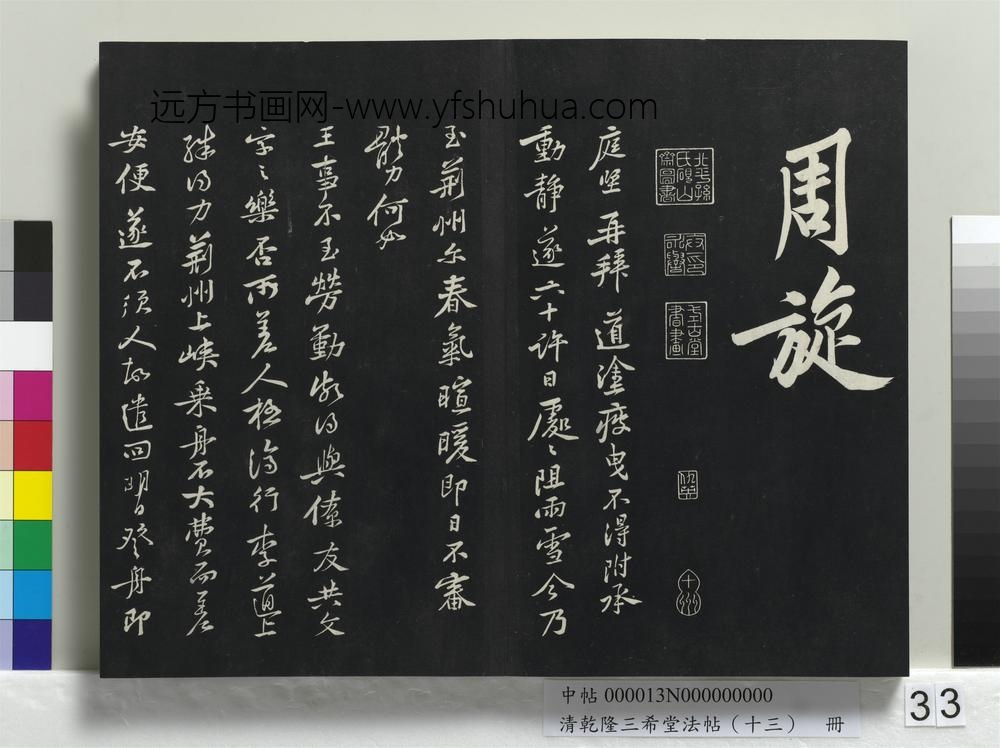 远方书画网-www.yfshuhua.com
周旋
北平孫氏硯山齋圖書
式古堂書畫
仇英
十洲
庭堅再拜道塗疲曳不得附承
動靜遂六十許日處〻阻雨雪今乃
至荊州尓春氣暄暖即日不審
體力何如
王事不至勞勤頗得與僚友共文
字之樂否所差人極濟行李道上
殊得力荊州上峽乘舟不大費而差
安便遂不須人故遣回明日發舟即
中帖 000013N000000000
清乾隆三希堂法帖（十三） 冊
33